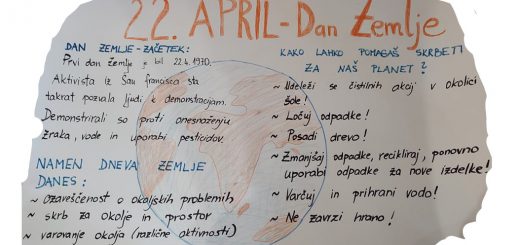 22. APRIL - Dan Zemlje
DAN ZEMLJE - ZAČETEK:
Prvi dan zemlje je bil 22.4. 1970.
Aktivista iz San Francisca sta
takrat pozvala ljudi k demonstracijam.
Demonstrirali so proti onesnaženju
zraka, vode in uporabi pesticidov.
NAMEN DNEVA ZEMLJE
DANES:
~ Ozaveščenost o okoljskih problemih
~ skrb za okolje in prostor
~ varovanje okolja (različne aktivnosti)
KAKO LAHKO POMAGAŠ SKRBETI
ZA NAŠ PLANET?
~ Udeleži se čistilnih akcij v okolici
šole!
~ Ločuj odpadke!
~ Posadi drevo!
~ Zmanjšaj odpadke, recikliraj, ponovno
uporabi odpadke za nove izdelke!
~ Varčuj in prihrani vodo!
~ Ne zavrzi hrano!